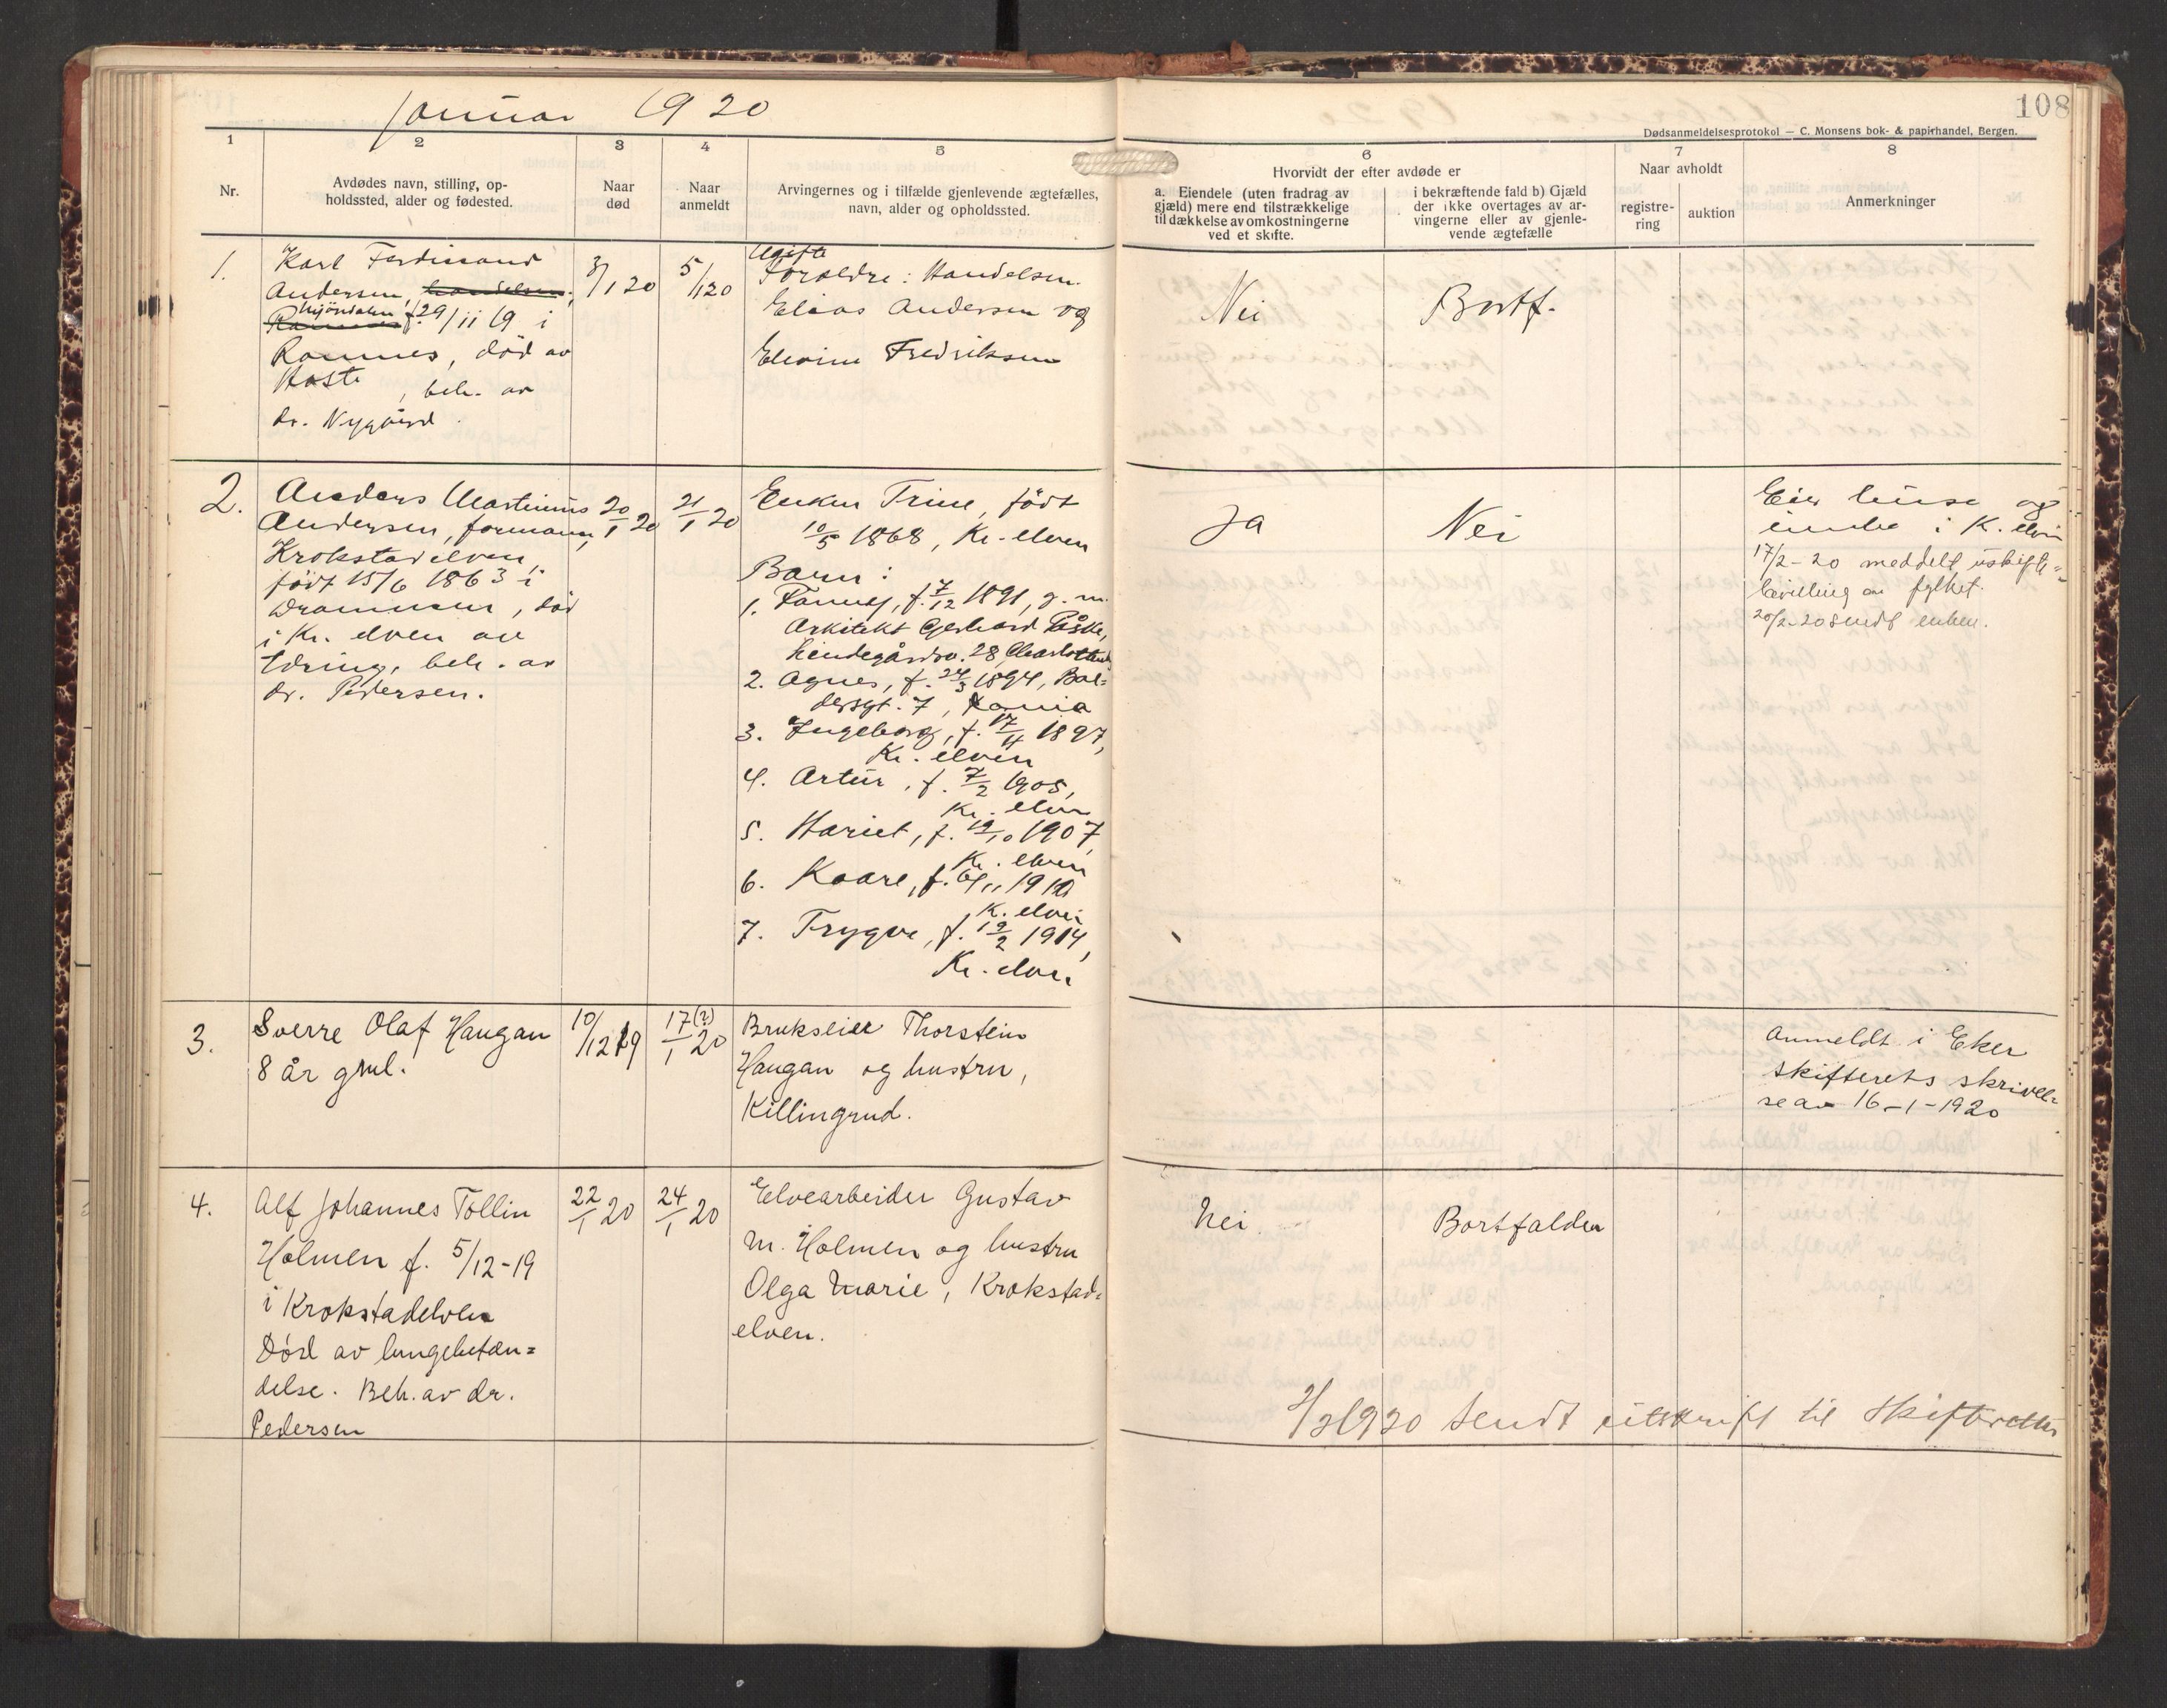 Januar 1920
108
Dødsanmeldelsesprotokol — C. Monsens bok- & papirhandel, Bergen.
1
Nr.
2
Avdødes navn, stilling, op-
holdssted, alder og fødested.
3
Naar
død
4
Naar
anmeldt
5
Arvingernes og i tilfælde gjenlevende ægtefælles,
navn, alder og opholdssted.
6
Hvorvidt der efter avdøde er
a. Eiendele (uten fradrag av
gjæld) mere end tilstrækkelige
til dækkelse av omkostningerne
ved et skifte.
i bekræftende fald b) Gjæld
der ikke overtages av ar-
vingerne eller av gjenle-
vende ægtefælle
7
Naar avholdt
registre-
ring
auktion
8
Anmerkninger
1.
Karl Ferdinand
Andersen, handelsm.,
Mjöndalen
f. 29/11 19 i
Ramnes, död av
Hoste, beh. av
dr. Nygård.
3/1 20
5/1 20
Ugift
Foraldre: Handelsm.
Elias Andersen og
Elevine Fredriksen
Nei
Bortf.
2.
Anders Martinius
Andersen, formann,
Krokstadelven,
födt 15/6 1863 i
Drammen, död
i Kr. elven av
tæring, beh. av
dr. Pedersen.
20/1 20
21/1 20
Enken Trine, födt
10/5 1868, Kr. elven
Barn:
1. Fanny, f. 7/12 1891, g. m.
Arkitekt Gerhard Påske,
Lindegårdsv. 28, Charlottenl.
2. Agnes, f. 24/3 1894, Bal=
dersgt. 7, Kania
3. Ingeborg, f. 17/11 1897,
Kr. elven
4. Artur, f. 7/2 1905,
Kr. elven
5. Hariet, f. 19/10 1907,
Kr. elven
6. Kaare, f. 6/11 1910
K. elven
7. Trygve, f. 19/2 1914,
Kr. elven
Ja
Nei
Eier huse og
indbo i K. elven
17/2-20 meddelt uskifte=
bevilling av fylket.
20/2-20 sendt enken.
3.
Sverre Olaf Haugan
8 år gml.
10/12 19
17(?)/1 20
Brukseier Thorstein
Haugan og hustru,
Killingrud.
Anmeldt i Eker
skifterets skrivel=
se av 16-1-1920
4.
Alf Johannes Tollin
Holmen f. 5/12-19
i Krokstadelven
Död av lungebetæn=
delse. Beh. av dr.
Pedersen
22/1 20
24/1 20
Elvearbeider Gustav
M. Holmen og hustru
Olga Marie, Krokstad=
elven.
Nei.
Bortfalder
2/2 1920 sendt utskrift til Skifteretten